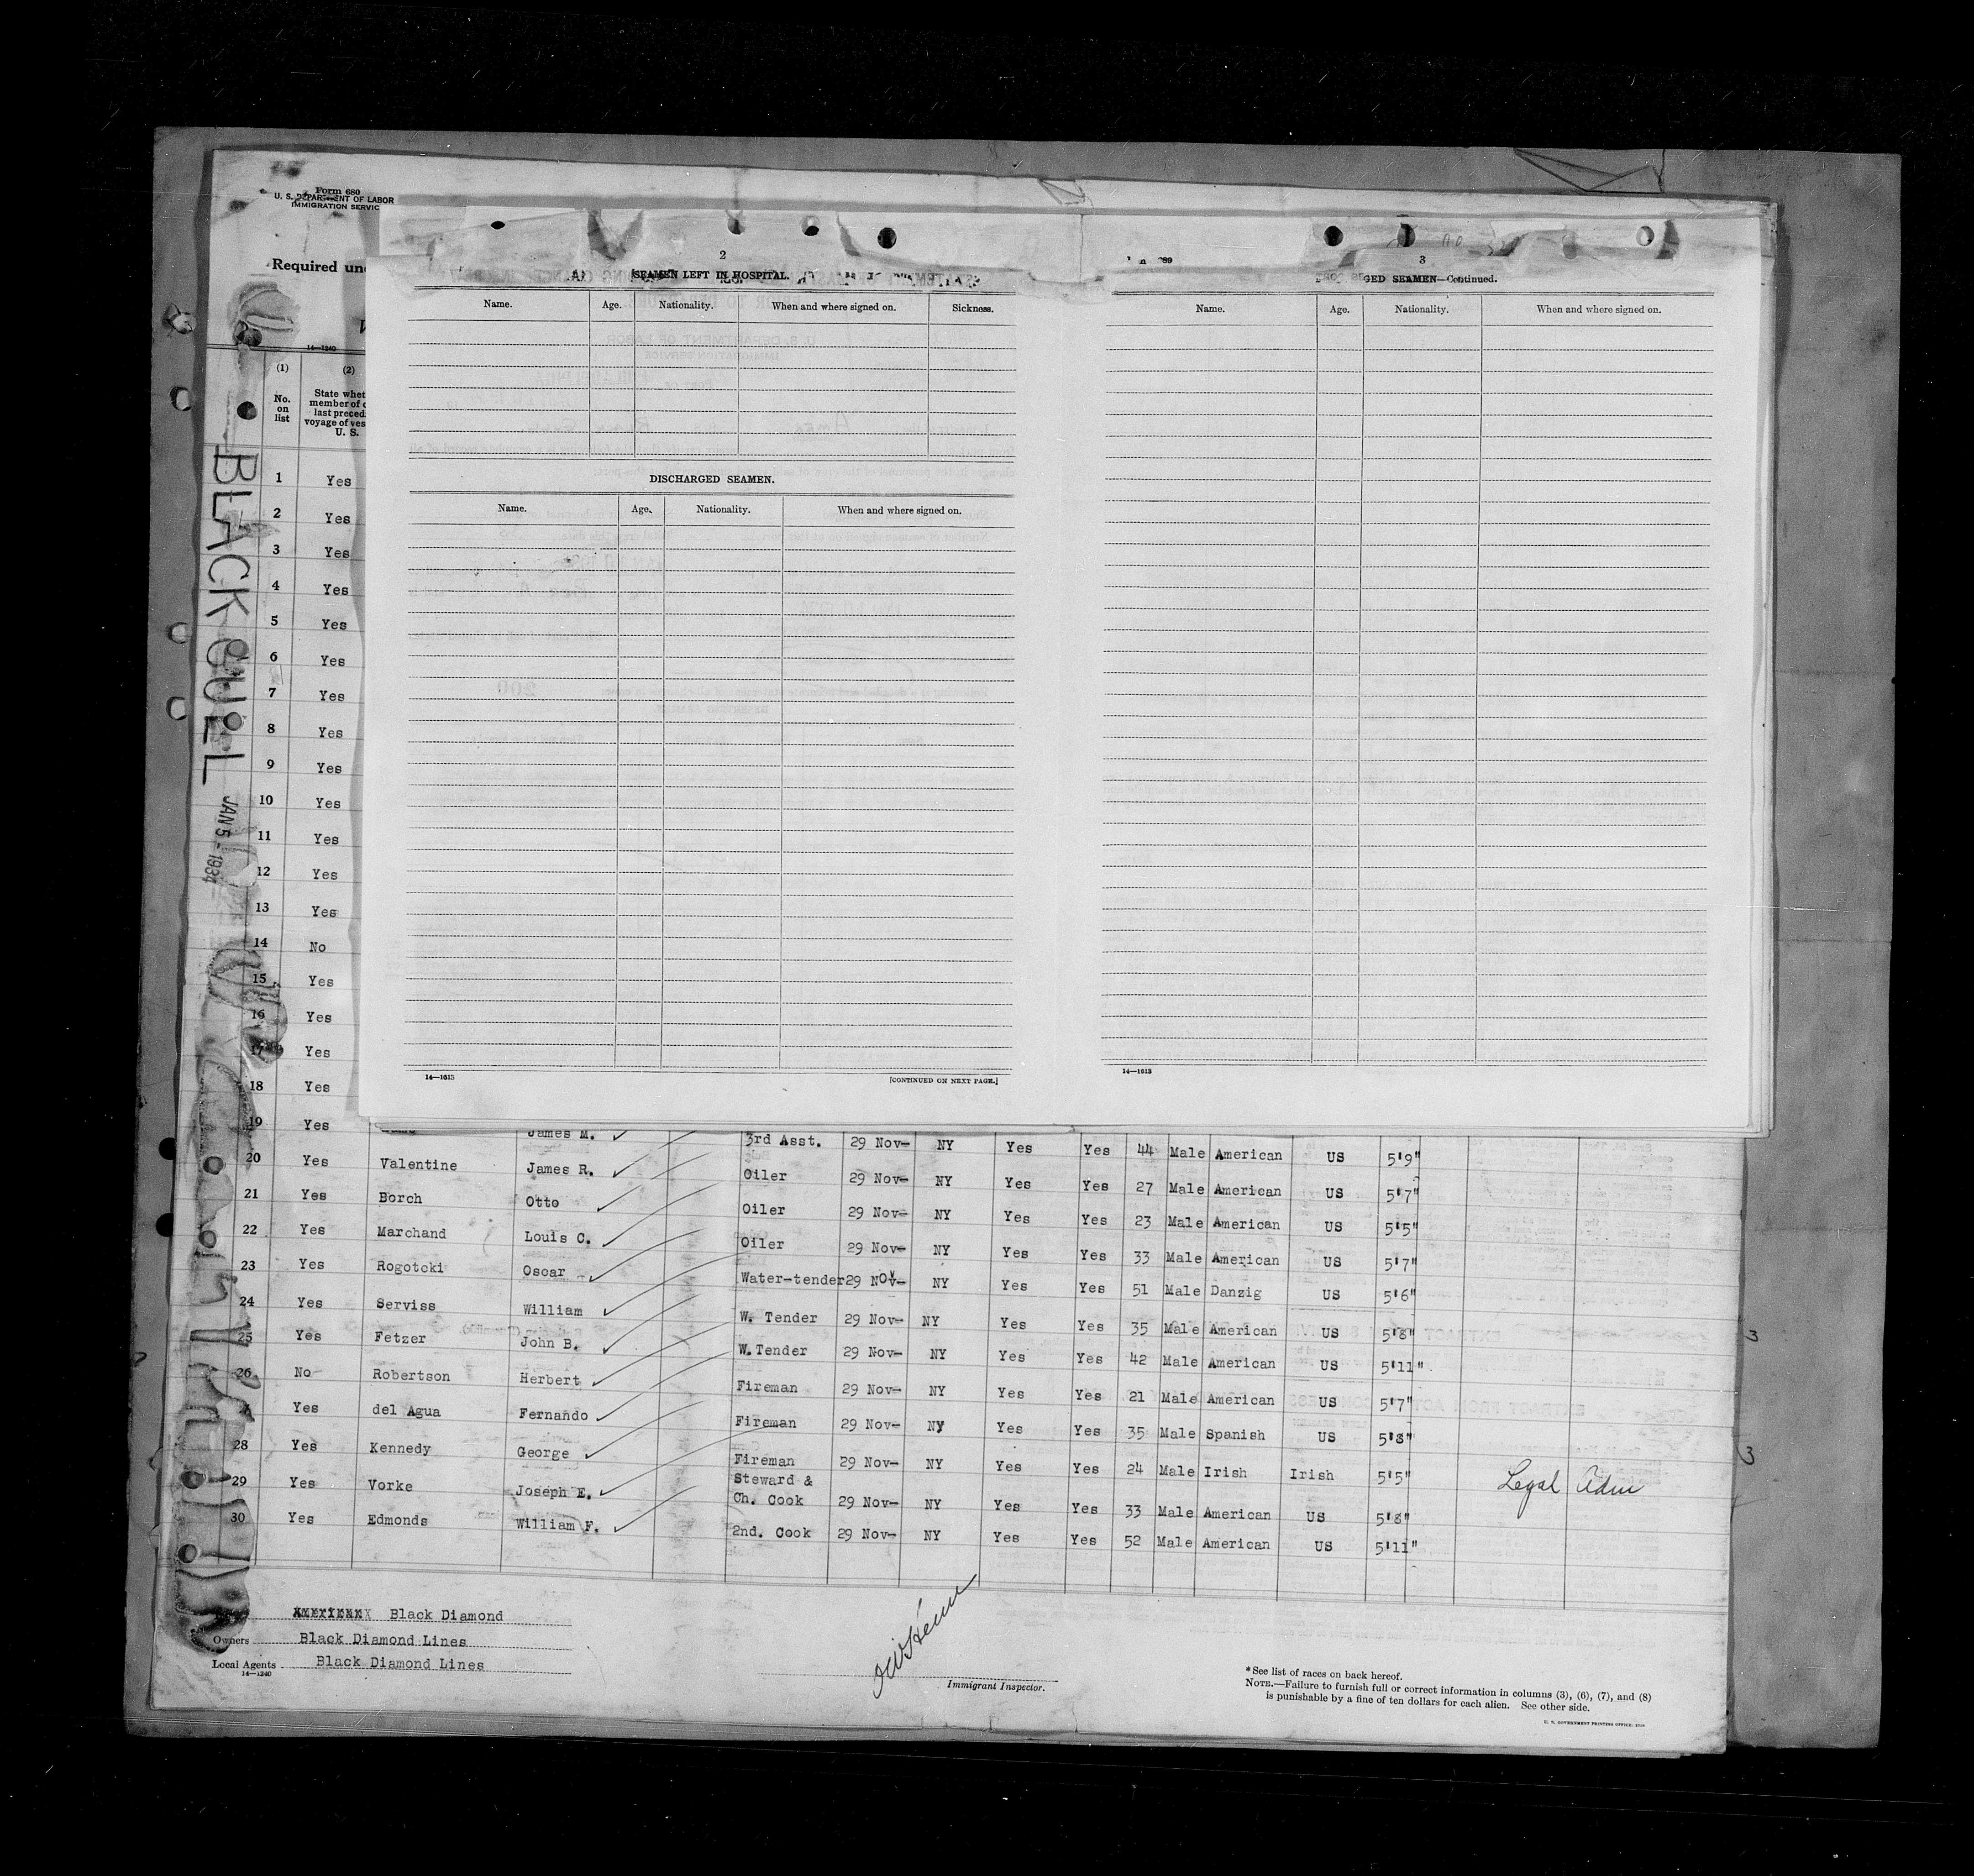 Form 680
U. S. DEPARTMENT OF LABOR
IMMIGRATION SERVIC
Required und
14—1240
(1) (2)
No. on list
State whet
member of c
last preced
voyage of ves
U. S.
BLACK GULL JAN 5 - 1934
1 Yes
2 Yes
3 Yes
4 Yes
5 Yes
6 Yes
7 Yes
8 Yes
9 Yes
10 Yes
11 Yes
12 Yes
13 Yes
14 No
15 Yes
16 Yes
17 Yes
18 Yes
2
SEAMEN LEFT IN HOSPITAL.
Name. Age. Nationality. When and where signed on. Sickness.
DISCHARGED SEAMEN.
Name. Age. Nationality. When and where signed on.
14—1613 [CONTINUED ON NEXT PAGE.]
3
GED SEAMEN—Continued.
Name. Age. Nationality. When and where signed on.
14—1613
19 Yes James M. 3rd Asst. 29 Nov— NY Yes Yes 44 Male American US 5'9"
20 Yes Valentine James R. Oiler 29 Nov— NY Yes Yes 27 Male American US 5'7"
21 Yes Borch Otto Oiler 29 Nov— NY Yes Yes 23 Male American US 5'5"
22 Yes Marchand Louis C. Oiler 29 Nov— NY Yes Yes 33 Male American US 5'7"
23 Yes Rogotcki Oscar Water-tender 29 Nov— NY Yes Yes 51 Male Danzig US 5'6"
24 Yes Serviss William W. Tender 29 Nov— NY Yes Yes 35 Male American US 5'8"
25 Yes Fetzer John B. W.Tender 29 Nov— NY Yes Yes 42 Male American US 5'11"
26 No Robertson Herbert Fireman 29 Nov— NY Yes Yes 21 Male American US 5'7"
Yes del Agua Fernando Fireman 29 Nov— NY Yes Yes 35 Male Spanish US 5'8"
28 Yes Kennedy George Fireman 29 Nov— NY Yes Yes 24 Male Irish Irish 5'5" Legal Adm
29 Yes Vorke Joseph E. Steward & Ch. Cook 29 Nov— NY Yes Yes 33 Male American US 5'8"
30 Yes Edmonds William F. 2nd. Cook 29 Nov— NY Yes Yes 52 Male American US 5'11"
Black Diamond
Owners Black Diamond Lines
Local Agents Black Diamond Lines
14—1240
Immigrant Inspector.
*See list of races on back hereof.
NOTE.—Failure to furnish full or correct information in columns (3), (6), (7), and (8)
is punishable by a fine of ten dollars for each alien. See other side.
U. S. GOVERNMENT PRINTING OFFICE: